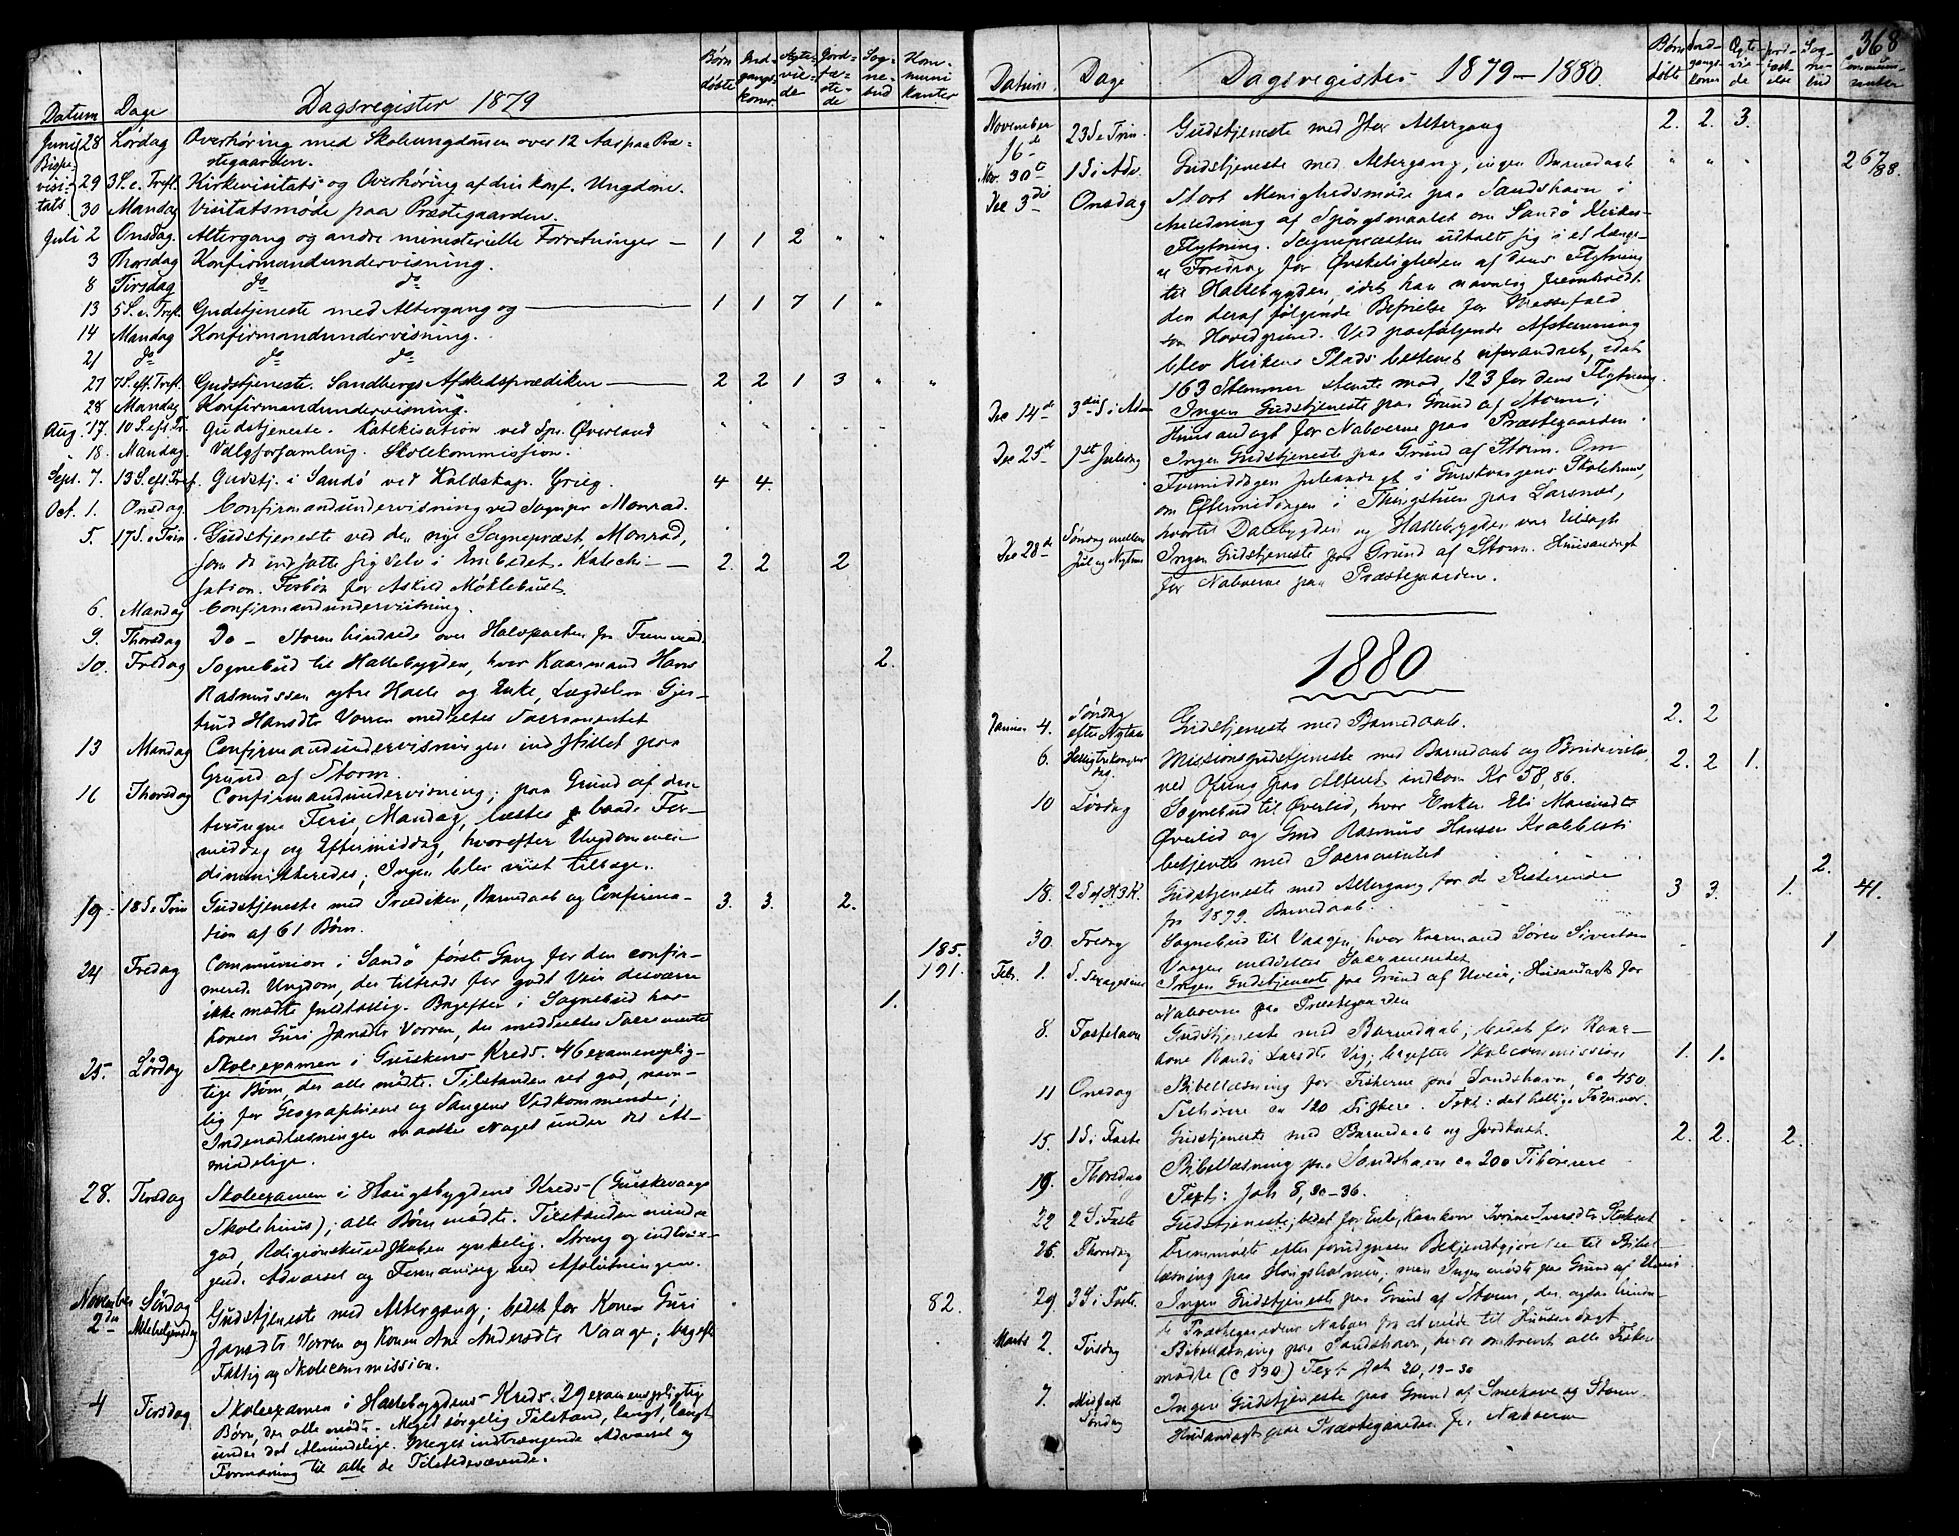 Datum Dage Dagsregister 1879 Børn døbte Ind-gangs-koner Ægte-vie-de Jord-fæ-ste-de Sog-ne-bud Kom-muni kanter
Juni 28 Lørdag Overhøring med Skoleungdomen over 12 Aar paa Præ-
Bispe- stegaarden.
visi- 29 3 S. e. Tref. Kirkevisitats og Overhøring af den konf. Ungdom.
tats. 30 Mandag Visitatsmøde paa Præstegaarden.
Juli 2 Onsdag. Altergang og andre ministerielle Forretninger — 1 1 2 " "
3 Thorsdag Konfirmandundervisning.
8 Tirsdag do do
13 5 S. e. Tref. Gudstjeneste med Altergang og — 1 1 7 1 "
14 Mandag Konfirmandundervisning.
21 do do do
27 7 S. eft. Tref. Gudstjeneste. Sandbergs Afskedsprædiken — 2 2 1 3 " "
28 Mandag Konfirmandundervisning.
Aug. 17. 10 S. eft. Tr. Gudstjeneste. Katekisation ved Spr. Øverland
18. Mandag. Valgforsamling. Skolekommission.
Sept. 7. 13 S. eft. Tref. Gudstj. i Sandø ved Kaldskap. Grieg. 4 4.
Oct. 1. Onsdag Confirmandundervisning ved Sognepr Monrad.
5. 17 S. e Trin Gudstjeneste ved den nye Sognepræst Monrad,
som da indsatte sig selv i Embedet. Katechi- — 2. 2 2
sation. Forbøn for Askild Møklebust.
6. Mandag Confirmandundervisning.
9. Thorsdag Do - Storm hindrede over Halvparten fr Fremmøde.
10. Fredag Sognebud til Hallebygden, hvor Kaarmand Hans 2.
Rasmussen ytre Halle og Enke, Lægdslem Gjer-
trud Hansdtr Vorren meddeltes Sacramentet
13 Mandag Confirmandundervisningen indstillet paa
Grund af Storm.
16 Thorsdag Confirmandundervisning; paa Grund af den
tvungne Ferie Mandag, læstes baade For-
middag og Eftermiddag, hvorefter Ungdommen
dimmitteredes; Ingen blev viist tilbage.
19. 18 S e Trin Gudstjeneste med Prædiken, Barnedaab og Confirma- 3. 3. 2.
tion af 61 Børn.
185.
24 Fredag Communion i Sandø første Gang for den confir- 191.
merede Ungdom, der tiltrods for godt Veir desværre
ikke mødte fuldtallig. Bagefter i Sognebud hos 1.
Konen Guri Jansdtr Vorren, der meddeltes Sacramentet
25. Lørdag Skoleexamen i Gurskens Kreds. 46 examenplig-
tige Børn der alle mødte. Tilstanden ret god, navn-
lig for Geographiens og Sangens Vedkommende;
Indenadlæsningen maaske Noget under det Al-
mindelige.
28. Tirsdag Skoleexamen i Haugsbygdens Kreds (Gurskevaags
Skolehuus); alle Børn mødte. Tilstanden mindre
god, Religionskundskaben ynkelig. Streng og indtræn-
gende Advarsel og Formaning ved Afslutningen.
November 2den Søndag Allehelgensdag Gudstjeneste med Altergang; bedet for Konen Guri 82.
Jansdtr Vorren og Konen Ane Andersdtr Vaage; bagefter
Fattig og Skolecommission.
4 Tirsdag Skoleexamen i Hallebygdens Kreds. 29 examenspligtige
Børn, der alle mødte. Meget sørgelig Tilstand, langt, langt
under det Almindelige. Meget indtrængende Advarsel og
Formaning til alle de Tilstedeværende.
368
Datum Dage Dagsregister 1879–1880. Børn døbte Ind-gangs-koner Ægte-vie-de Jord-fæst-else Sog-ne-bud Communi-canter
November 16de 23 S e Trin. Gudstjeneste med Altergang 2. 2. 3.
Nov. 30te 1 S i Adv. Gudstjeneste med Altergang, ingen Barnedaab " " " 267/88.
Dec 3die Onsdag Stort Menighedsmøde paa Sandshavn i
Anledning af Spørgsmaalet om Sandø Kirkes
Flytning. Sognepræsten udtalte sig i et længe-
re Foredrag for Ønskeligheden af dens Flytning
til Hallebygden, idet han navnlig fremholdt
den deraf følgende Befrielse for Messefald
som Hovedgrund. Ved paafølgende Afstemning
blev Kirkens Plads bestemt uforandret, idet
163 Stemmer stemte mod 123 for dens Flytning.
Dec 14de 3die S i Adv Ingen Gudstjeneste paa Grund af Storm;
Huusandagt for Naboerne paa Præstegaarden
Dec 25de 1ste Juledag Ingen Gudstjeneste paa Grund af Storm. Om
Formiddagen Juleandagt i Gurskevaagens Skolehuus,
om Eftermiddagen i Thingstuen paa Larsnæs,
hvortil Dalsbygden og Hallebygden var tilsagt
Dec 28de Søndag mellem Jul og Nytaar Ingen Gudstjeneste paa Grund af Storm. Huusandagt
for Naboerne paa Præstegaarden.
1880
Januar 4. Søndag efter Nytaar Gudstjeneste med Barnedaab. 2. 2
6. Helligtrekonger dag. Missionsgudstjeneste med Barnedaab og Brudevielse, 2. 2 1.
ved Ofring paa Alteret indkom Kr 58,86.
10 Lørdag Sognebud til Øverlid, hvor Enken Eli
Øverlid og Gmd Rasmus Hansen Krabbesti
betjentes med Sacramentet 2.
18. 2 S ef H3K. Gudstjeneste med Altergang for de Resterende 3 3. 1. 41.
fr 1879. Barnedaab.
30. Fredag Sognebud til Vaagen, hvor Kaarmand Søren Sivertsen 1
Vaagen meddeltes Sacramentet
Feb. 1. S. Sexagesima Ingen Gudstjeneste paa Grund af Uveir; Huusandagt for
Naboerne paa Præstegaarden
8. Fastelavn Gudstjeneste med Barnedaab; bedet for Kaar-
kone Randi Larsdtr Vig; bagefter Skolecommission 1. 1.
11 Onsdag Bibellæsning for Fiskerne paa Sandshavn, ca 450
Tilhørere ca 120 Fiskere. Text: det hellige Fadervor.
15. 1 S i Faste Gudstjeneste med Barnedaab og Jordkast. 2. 2. 2.
19. Thorsdag Bibellæsning paa Sandshavn ca 200 Tilhørere
Text: Joh 8, 30–36.
22 2 S i Faste Gudstjeneste; bedet for Enke, Kaarkone Ivarsdtr
26. Thorsdag Fremmødte efter forudgaaen Bekjendtgjørelse til Bibel-
læsning paa Haugsholmen; men Ingen mødte paa Grund af Uveir
29 3 S i Faste. Ingen Gudstjeneste paa Grund af Storm, der ogsaa hindre-
de Præstegaardens Naboer fra at møde til Huusandagt
Marts 2. Tirsdag Bibellæsning paa Sandshavn, hvor omtrent alle Fiskere
mødte (c 530) Text Joh 20, 19–30
7. Midfaste Søndag Ingen Gudstjeneste paa Grund af Snekave og Storm.
Huusandagt paa Præstegaarden fr Naboerne